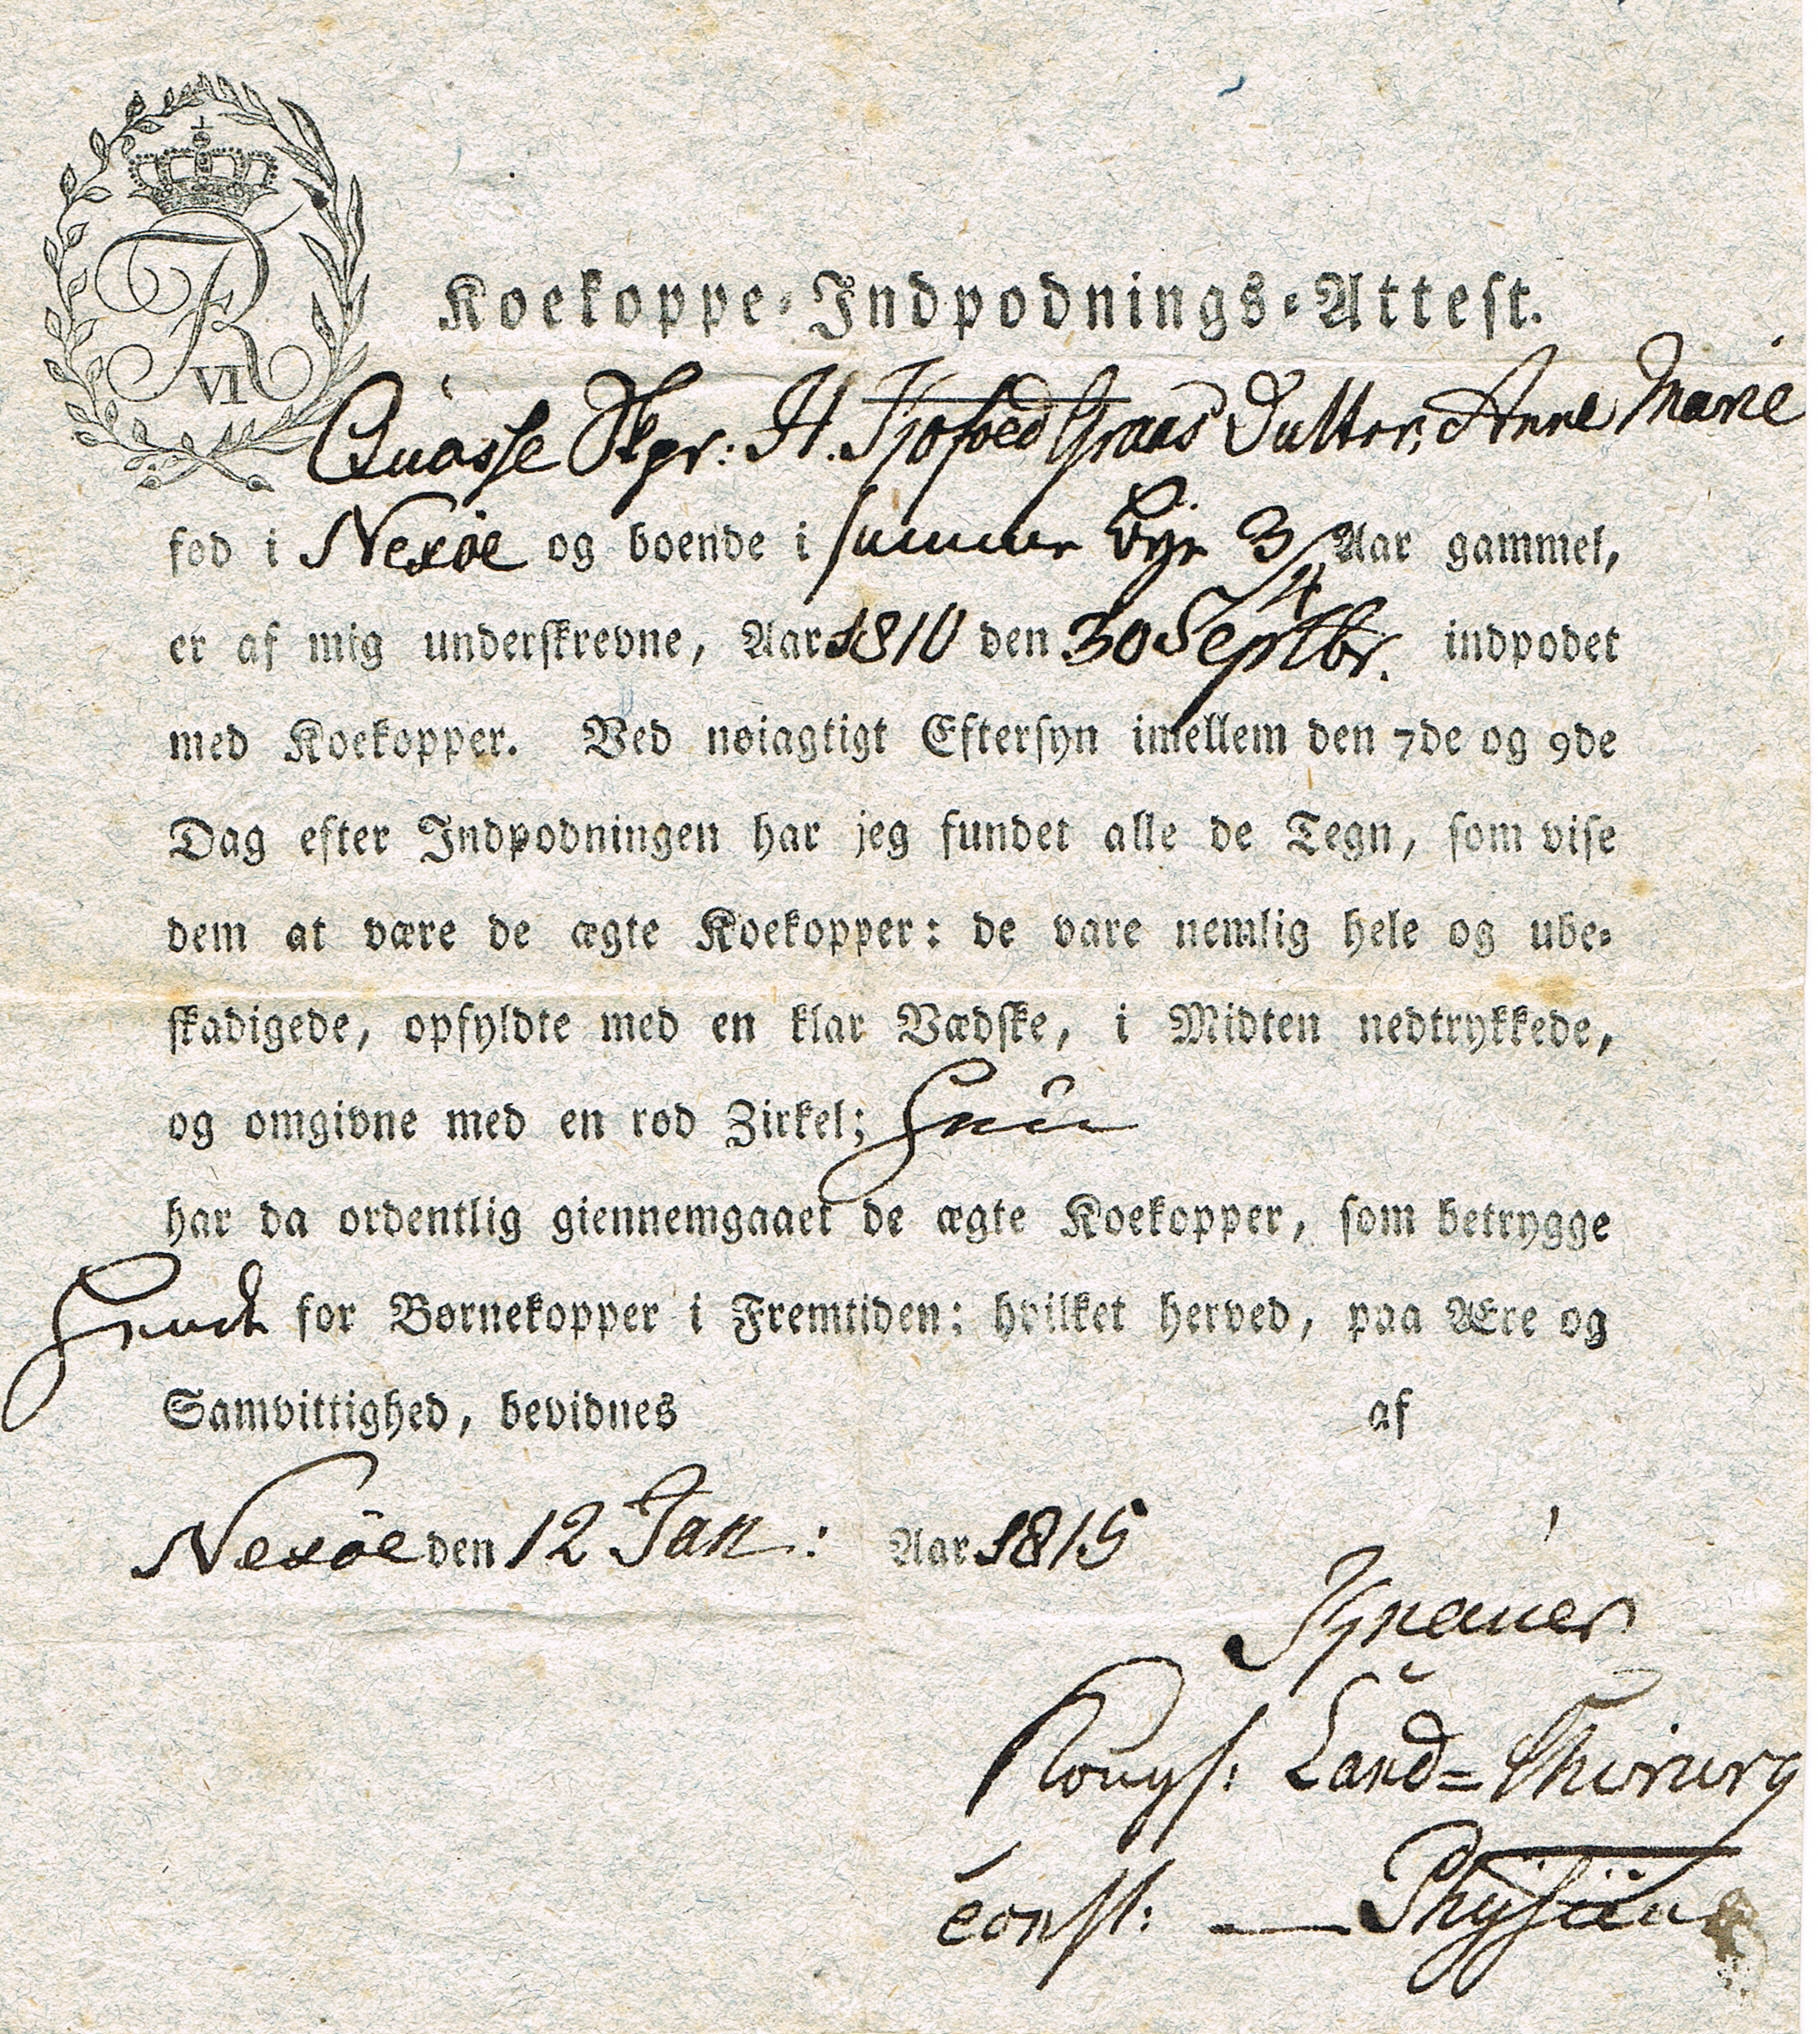 FR
VI
Koekoppe-Indpodnings-Attest.
H. Kofoed Graas Datter, Anne Marie
fød i Nexöe og boende i samme Bye 3/4 Aar gammel,
er af mig underskrevne, Aar 1810 den 30 Septbr. indpodet
med Koekopper. Ved nøiagtigt Eftersyn imellem den 7de og 9de
Dag efter Indpodningen har jeg fundet alle de Tegn, som vise
dem at være de ægte Koekopper: de vare nemlig hele og ube-
skadigede, opfyldte med en klar Vædske, i Midten nedtrykkede,
og omgivne med en rød Zirkel; Hun
har da ordentlig giennemgaaet de ægte Koekopper, som betrygge
Hende for Børnekopper i Fremtiden: hvilket herved, paa Ære og
Samvittighed, bevidnes af
Nexöe den 12 Jan: Aar 1815
Land=Chirurg
const: — Physicus